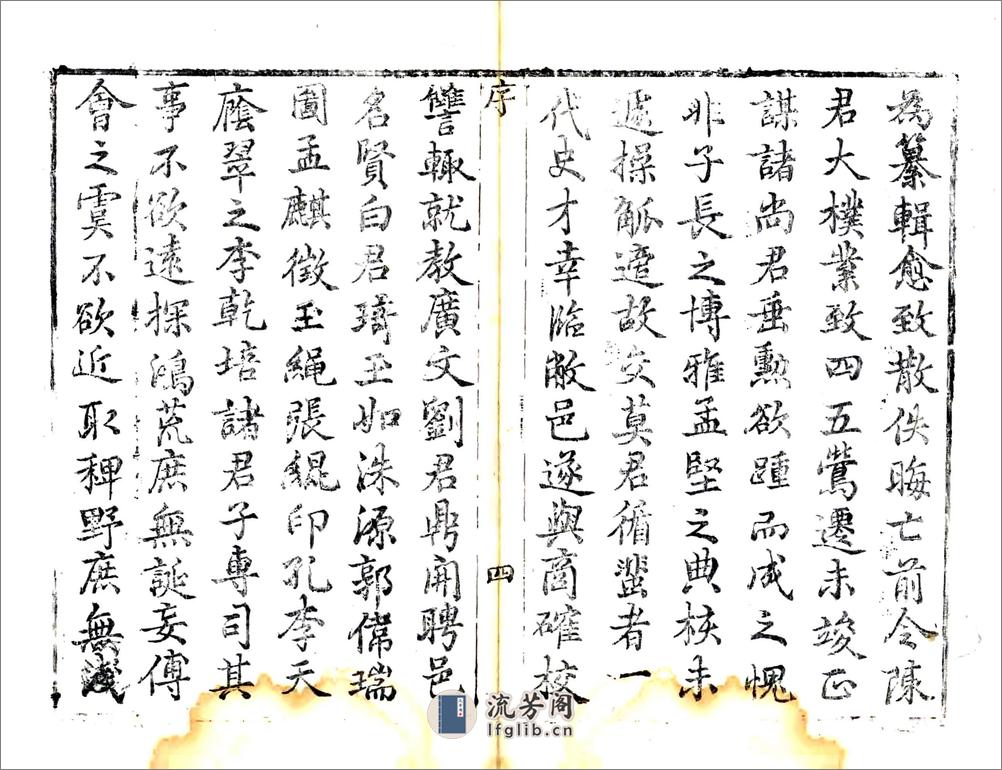 為纂輯愈致散佚晦亡前令陳
君大樸業致四五鶯遷未竣正
謀諸尚君垂勲欲踵而成之愧
非子長之博雅孟堅之典核未
遽操觚適故交莫君循蜚者一
代史才幸臨敝邑遂與商確校
序 四
讐輙就教廣文劉君鼎開聘邑
名賢白君琦王如洙源郭儒瑞
圖孟麒徵玉繩張緄印孔李天
廕翠之李乾培諸君子專司其
事不欲遠探鴻荒庶無誕妄傅
會之虞不欲近取稗野庶無淺
流芳阁
lfglib.cn